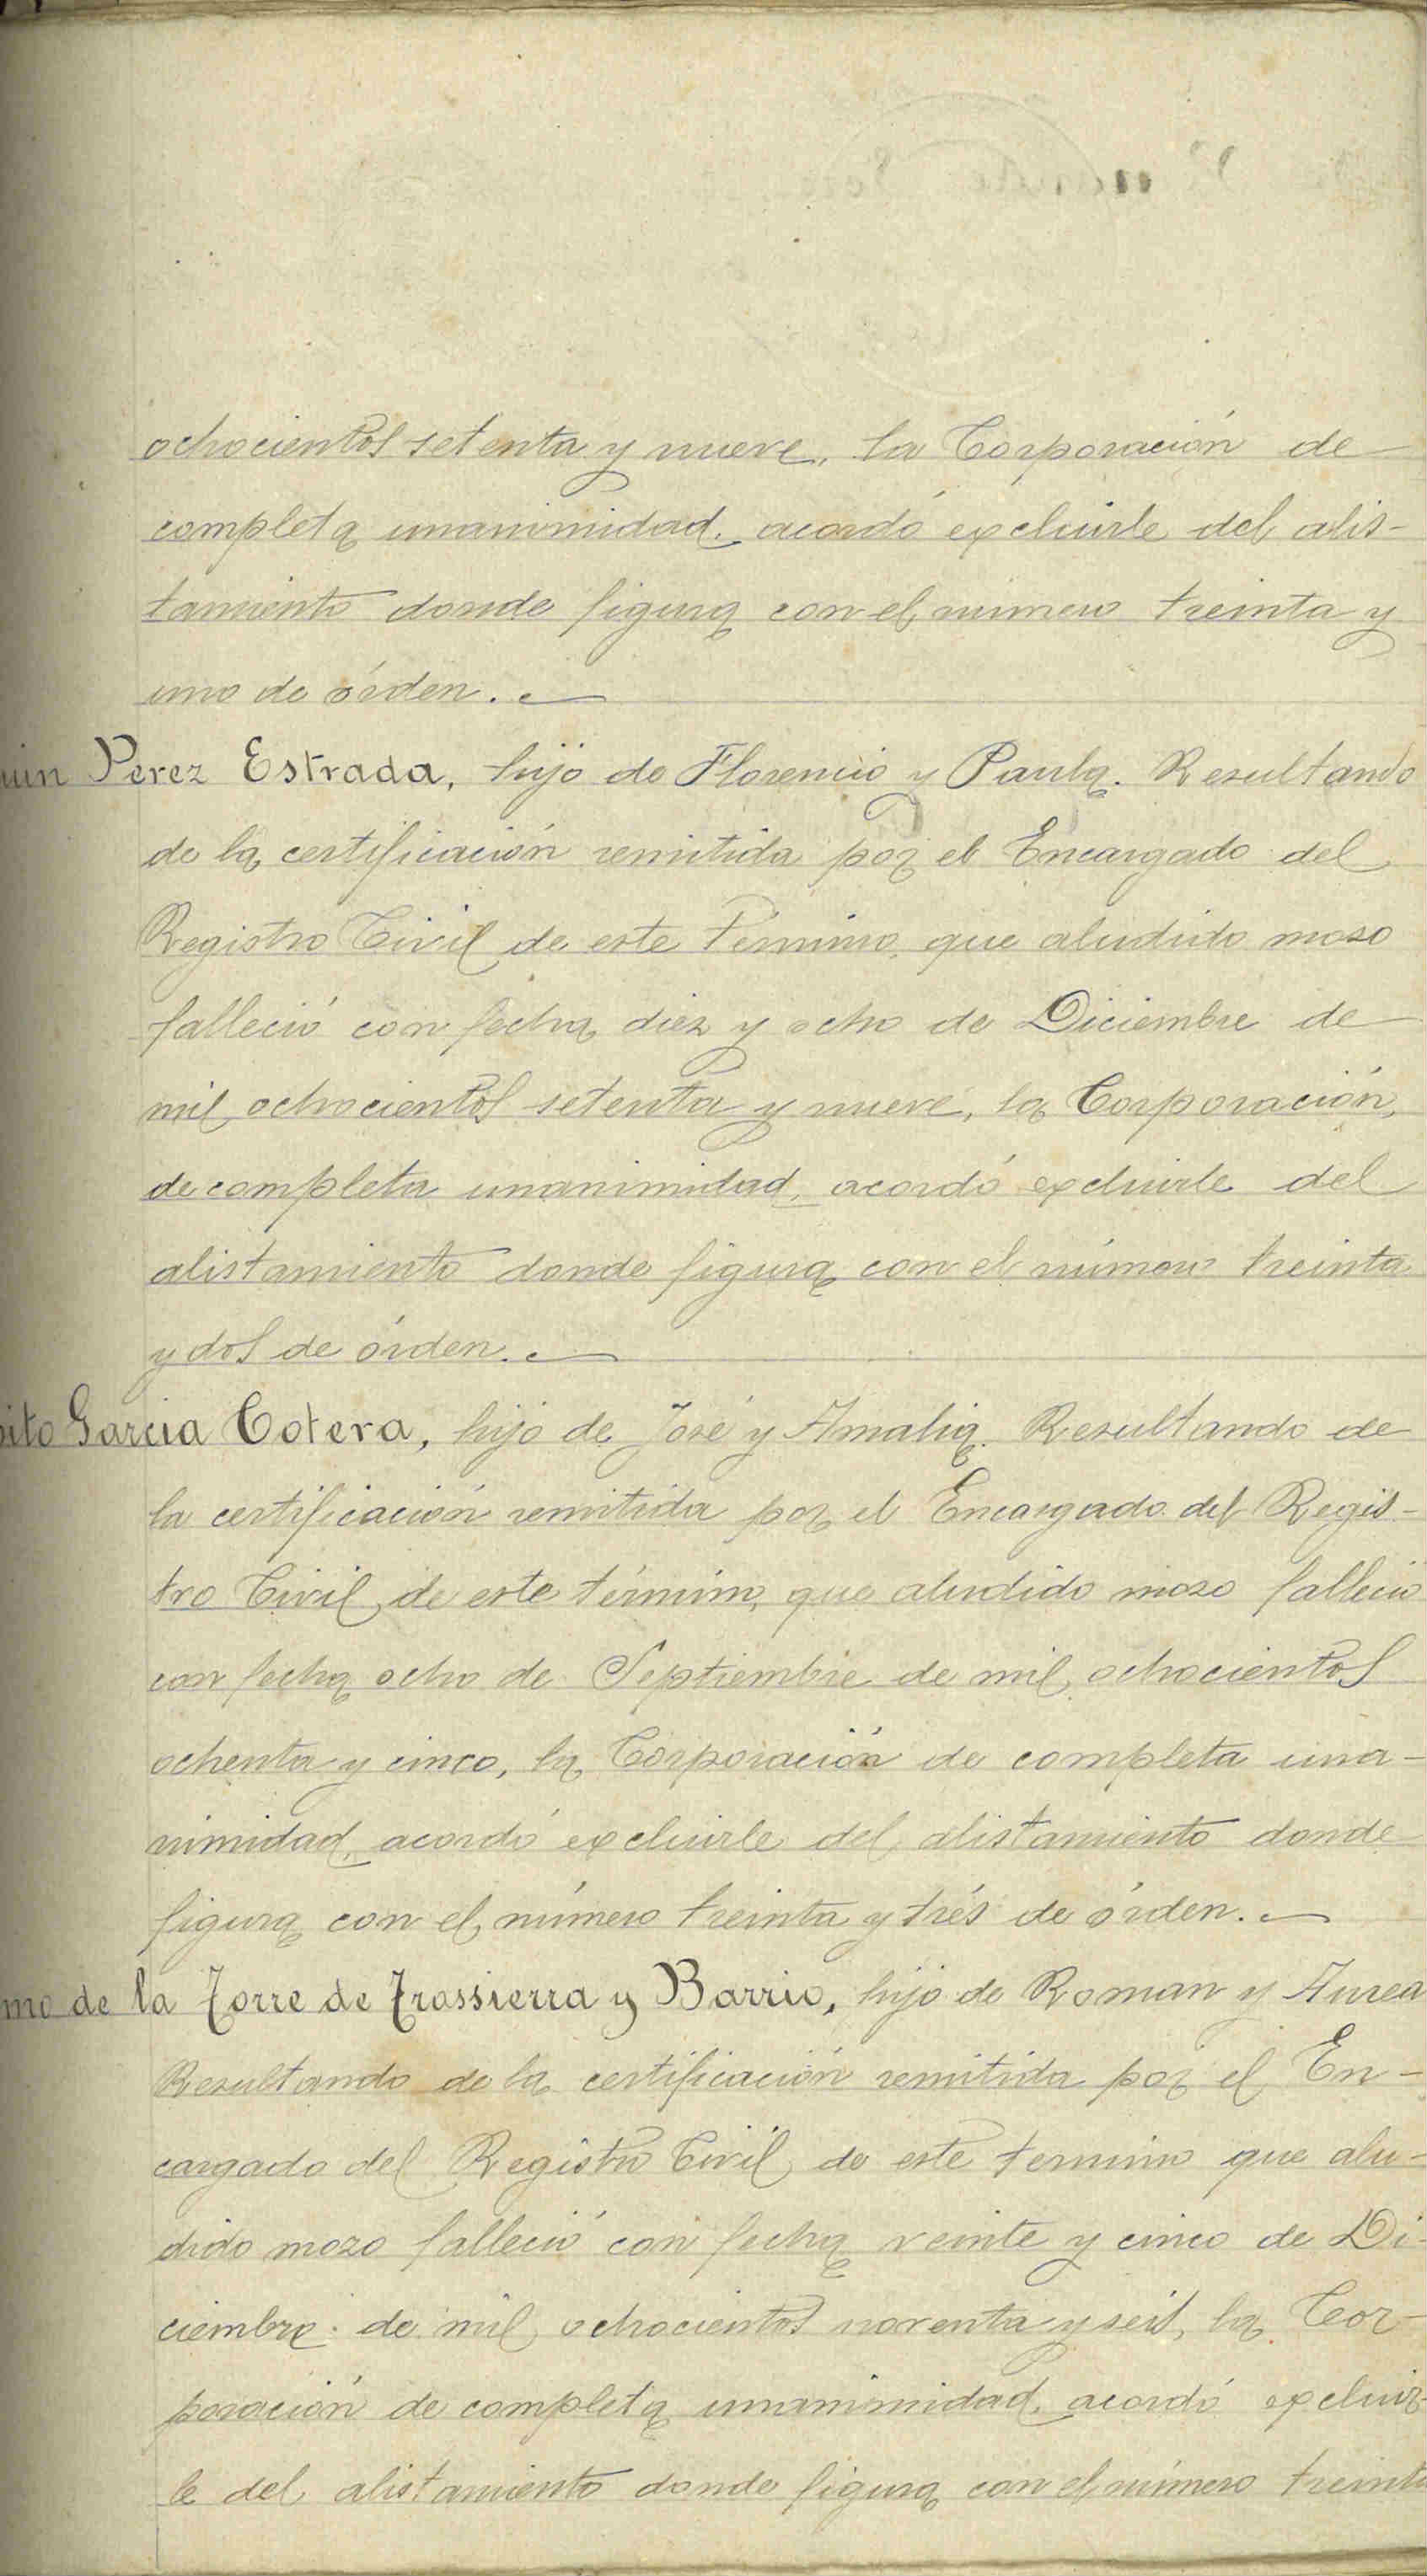 ochocientos setenta y nueve, la Corporación de
completa unanimidad, acordó excluirle del alis-
tamiento donde figura con el número treinta y
uno de órden.
uin Perez Estrada, hijo de Florencio y Paula. Resultando
de la certificación remitida por el Encargado del
Registro Civil de este término, que aludido moso
falleció con fecha diez y ocho de Diciembre de
mil ochocientos setenta y nueve, la Corporación,
de completa unanimidad, acordó excluirle del
alistamiento donde figura con el número treinta
y dos de órden.
ito Garcia Cotera, hijo de José y Amalia. Resultando de
la certificación remitida por el Encargado del Regis-
tro Civil de este término, que aludido moso falleció
con fecha ocho de Septiembre de mil ochocientos
ochenta y cinco, la Corporación de completa una-
nimidad, acordó excluirle del alistamiento donde
figura con el número treinta y trés de órden.
mo de la Torre de Trassierra y Barrio, hijo de Roman y Aurea
Resultando de la certificación remitida por el En-
cargado del Registro Civil de este termino que alu-
dido mozo falleció con fecha veinte y cinco de Di-
ciembre de mil ochocientos noventa y seis, la Cor-
poración de completa unanimidad, acordó excluir-
le del alistamiento donde figura con el número treinta